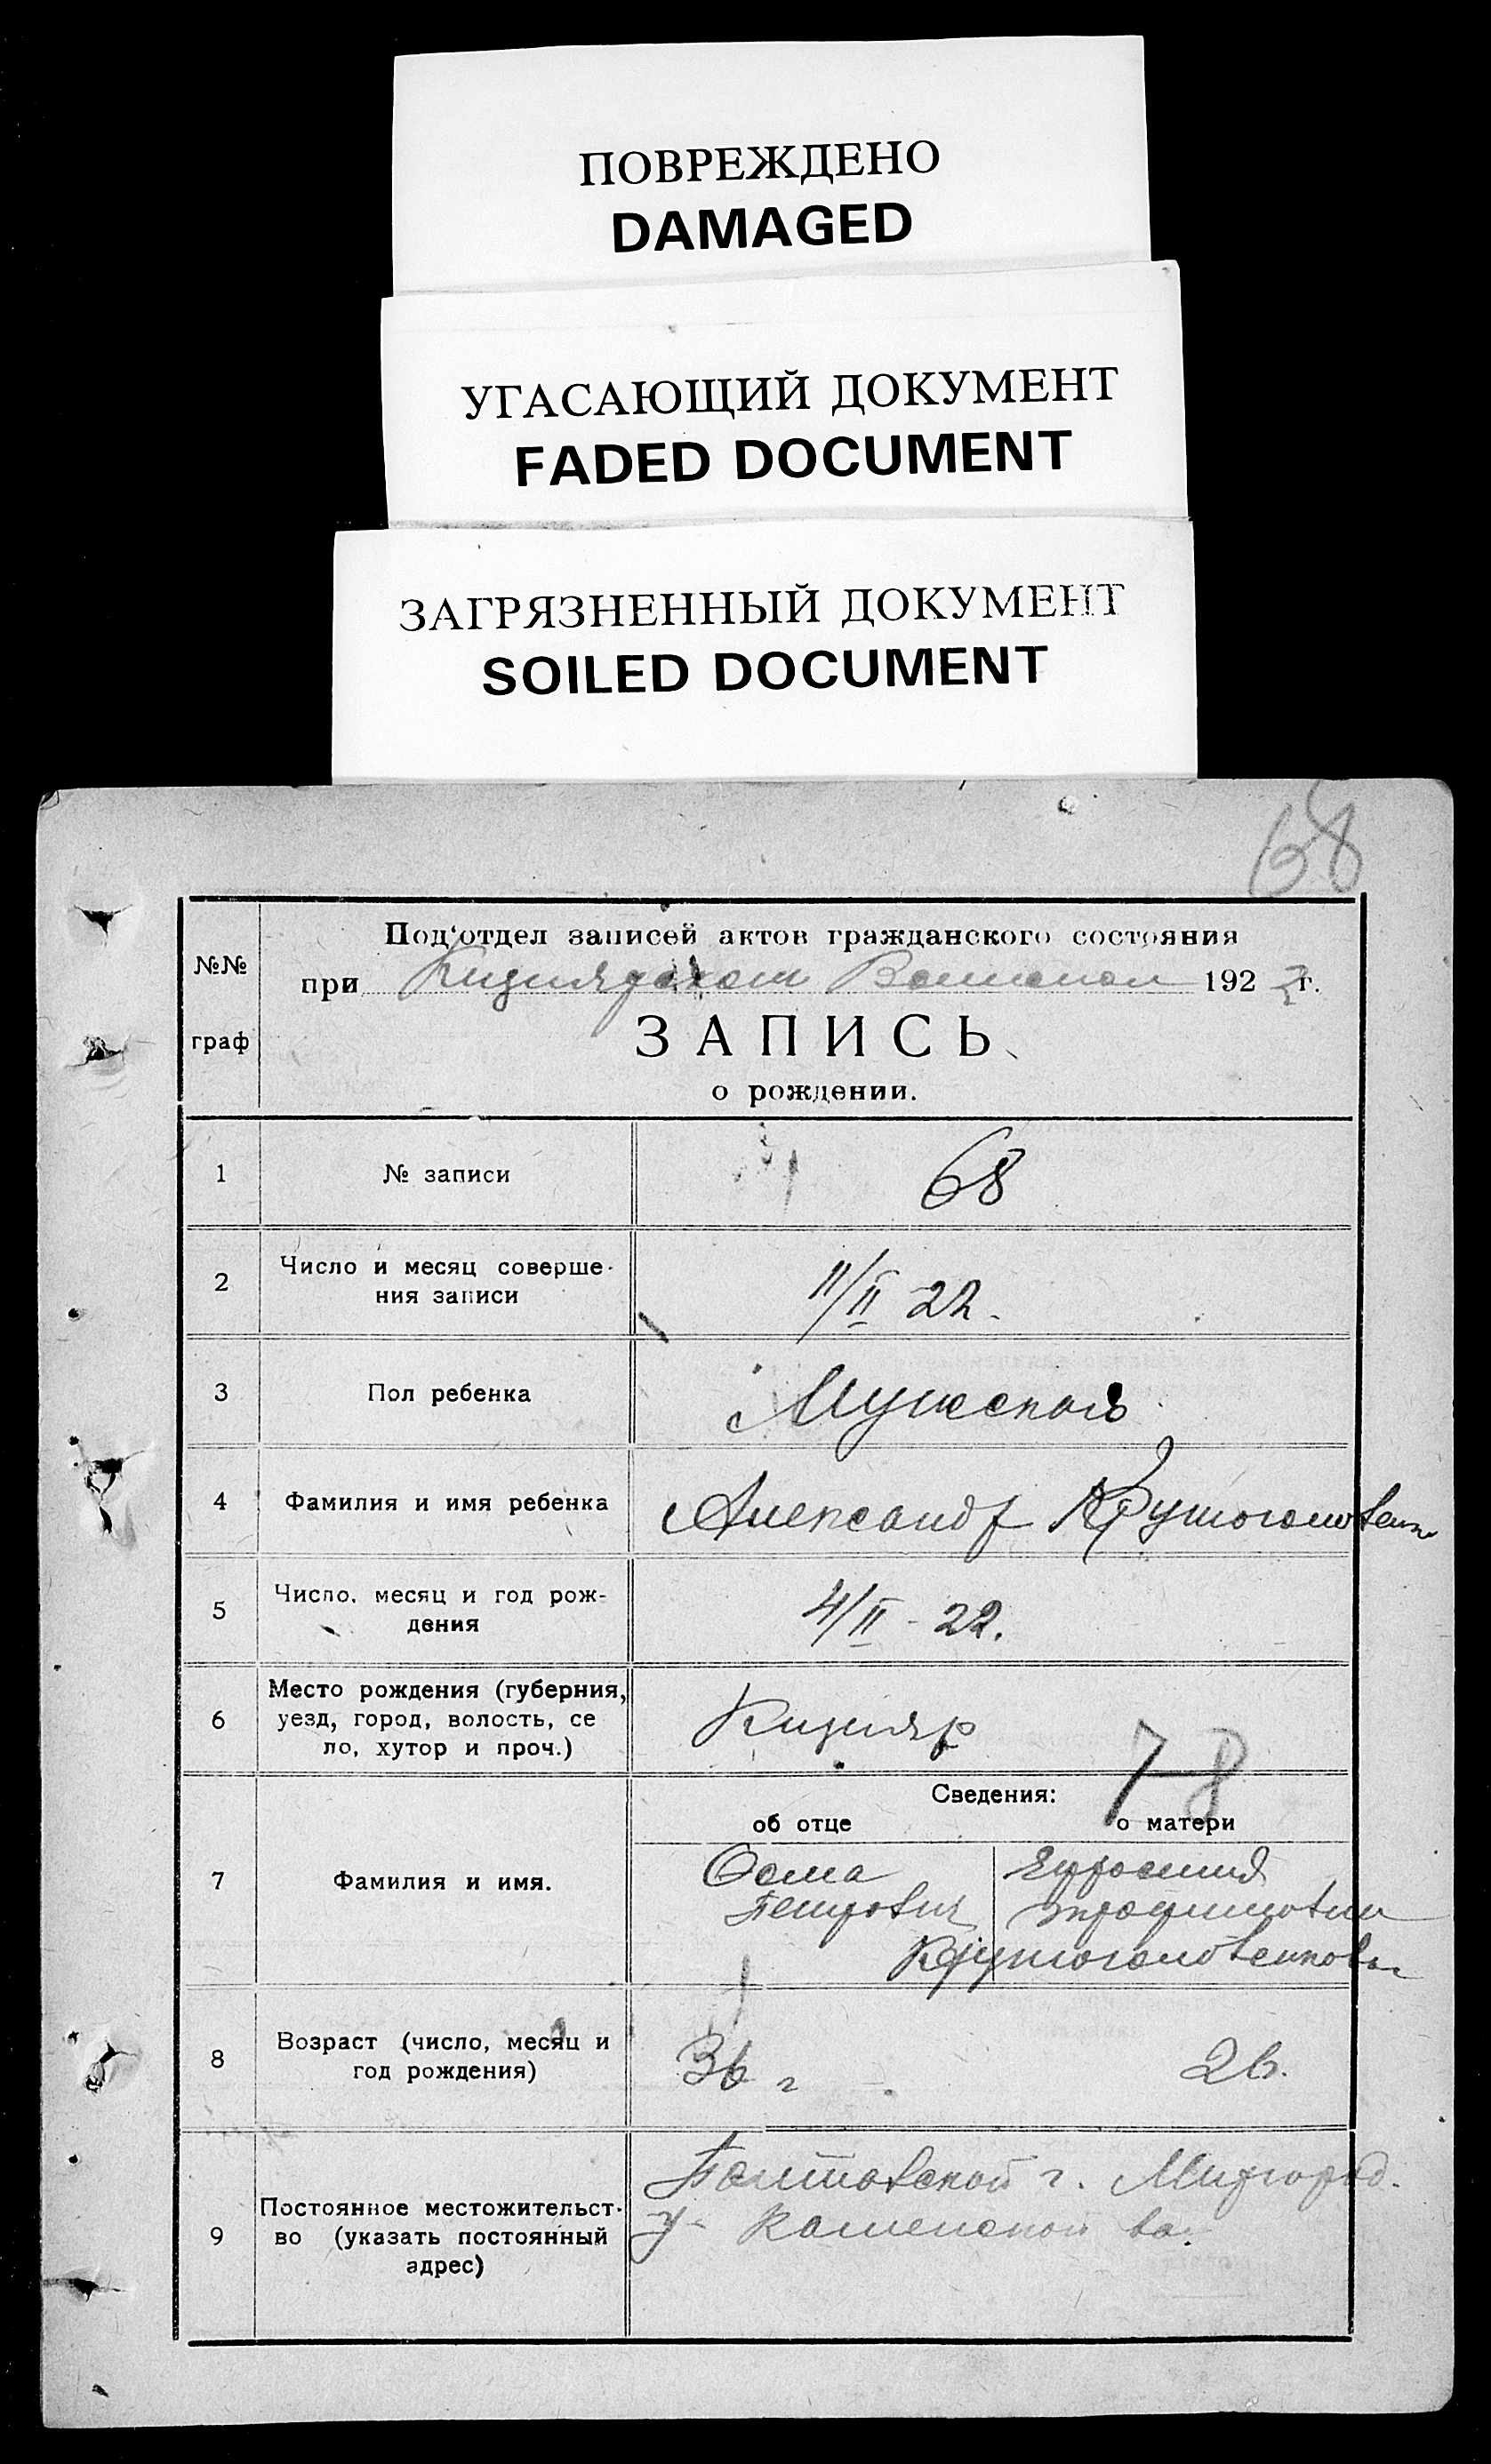 ПОВРЕЖДЕНО
DAMAGED
УГАСАЮЩИЙ ДОКУМЕНТ
FADED DOCUMENT
ЗАГРЯЗНЕННЫЙ ДОКУМЕНТ
SOILED DOCUMENT
68
№№ граф
Под‘отдел записей актов гражданского состояния
при 192 2 г.
ЗАПИСЬ
о рождении.
1 № записи 68
2 Число и месяц соверше-
ния записи 11/II 22.
3 Пол ребенка Мужской
4 Фамилия и имя ребенка Александр
5 Число, месяц и год рож-
дения 4/II - 22.
6 Место рождения (губерния,
уезд, город, волость, се
ло, хутор и проч.) Кизияр
7-8
Сведения:
об отце о матери
7 Фамилия и имя.
Фома
Петрович
8 Возраст (число, месяц и
год рождения) 36 г 26.
9 Постоянное местожительст-
во (указать постоянный
адрес)
Полтавской г. Миргород.
у. Каменской во.